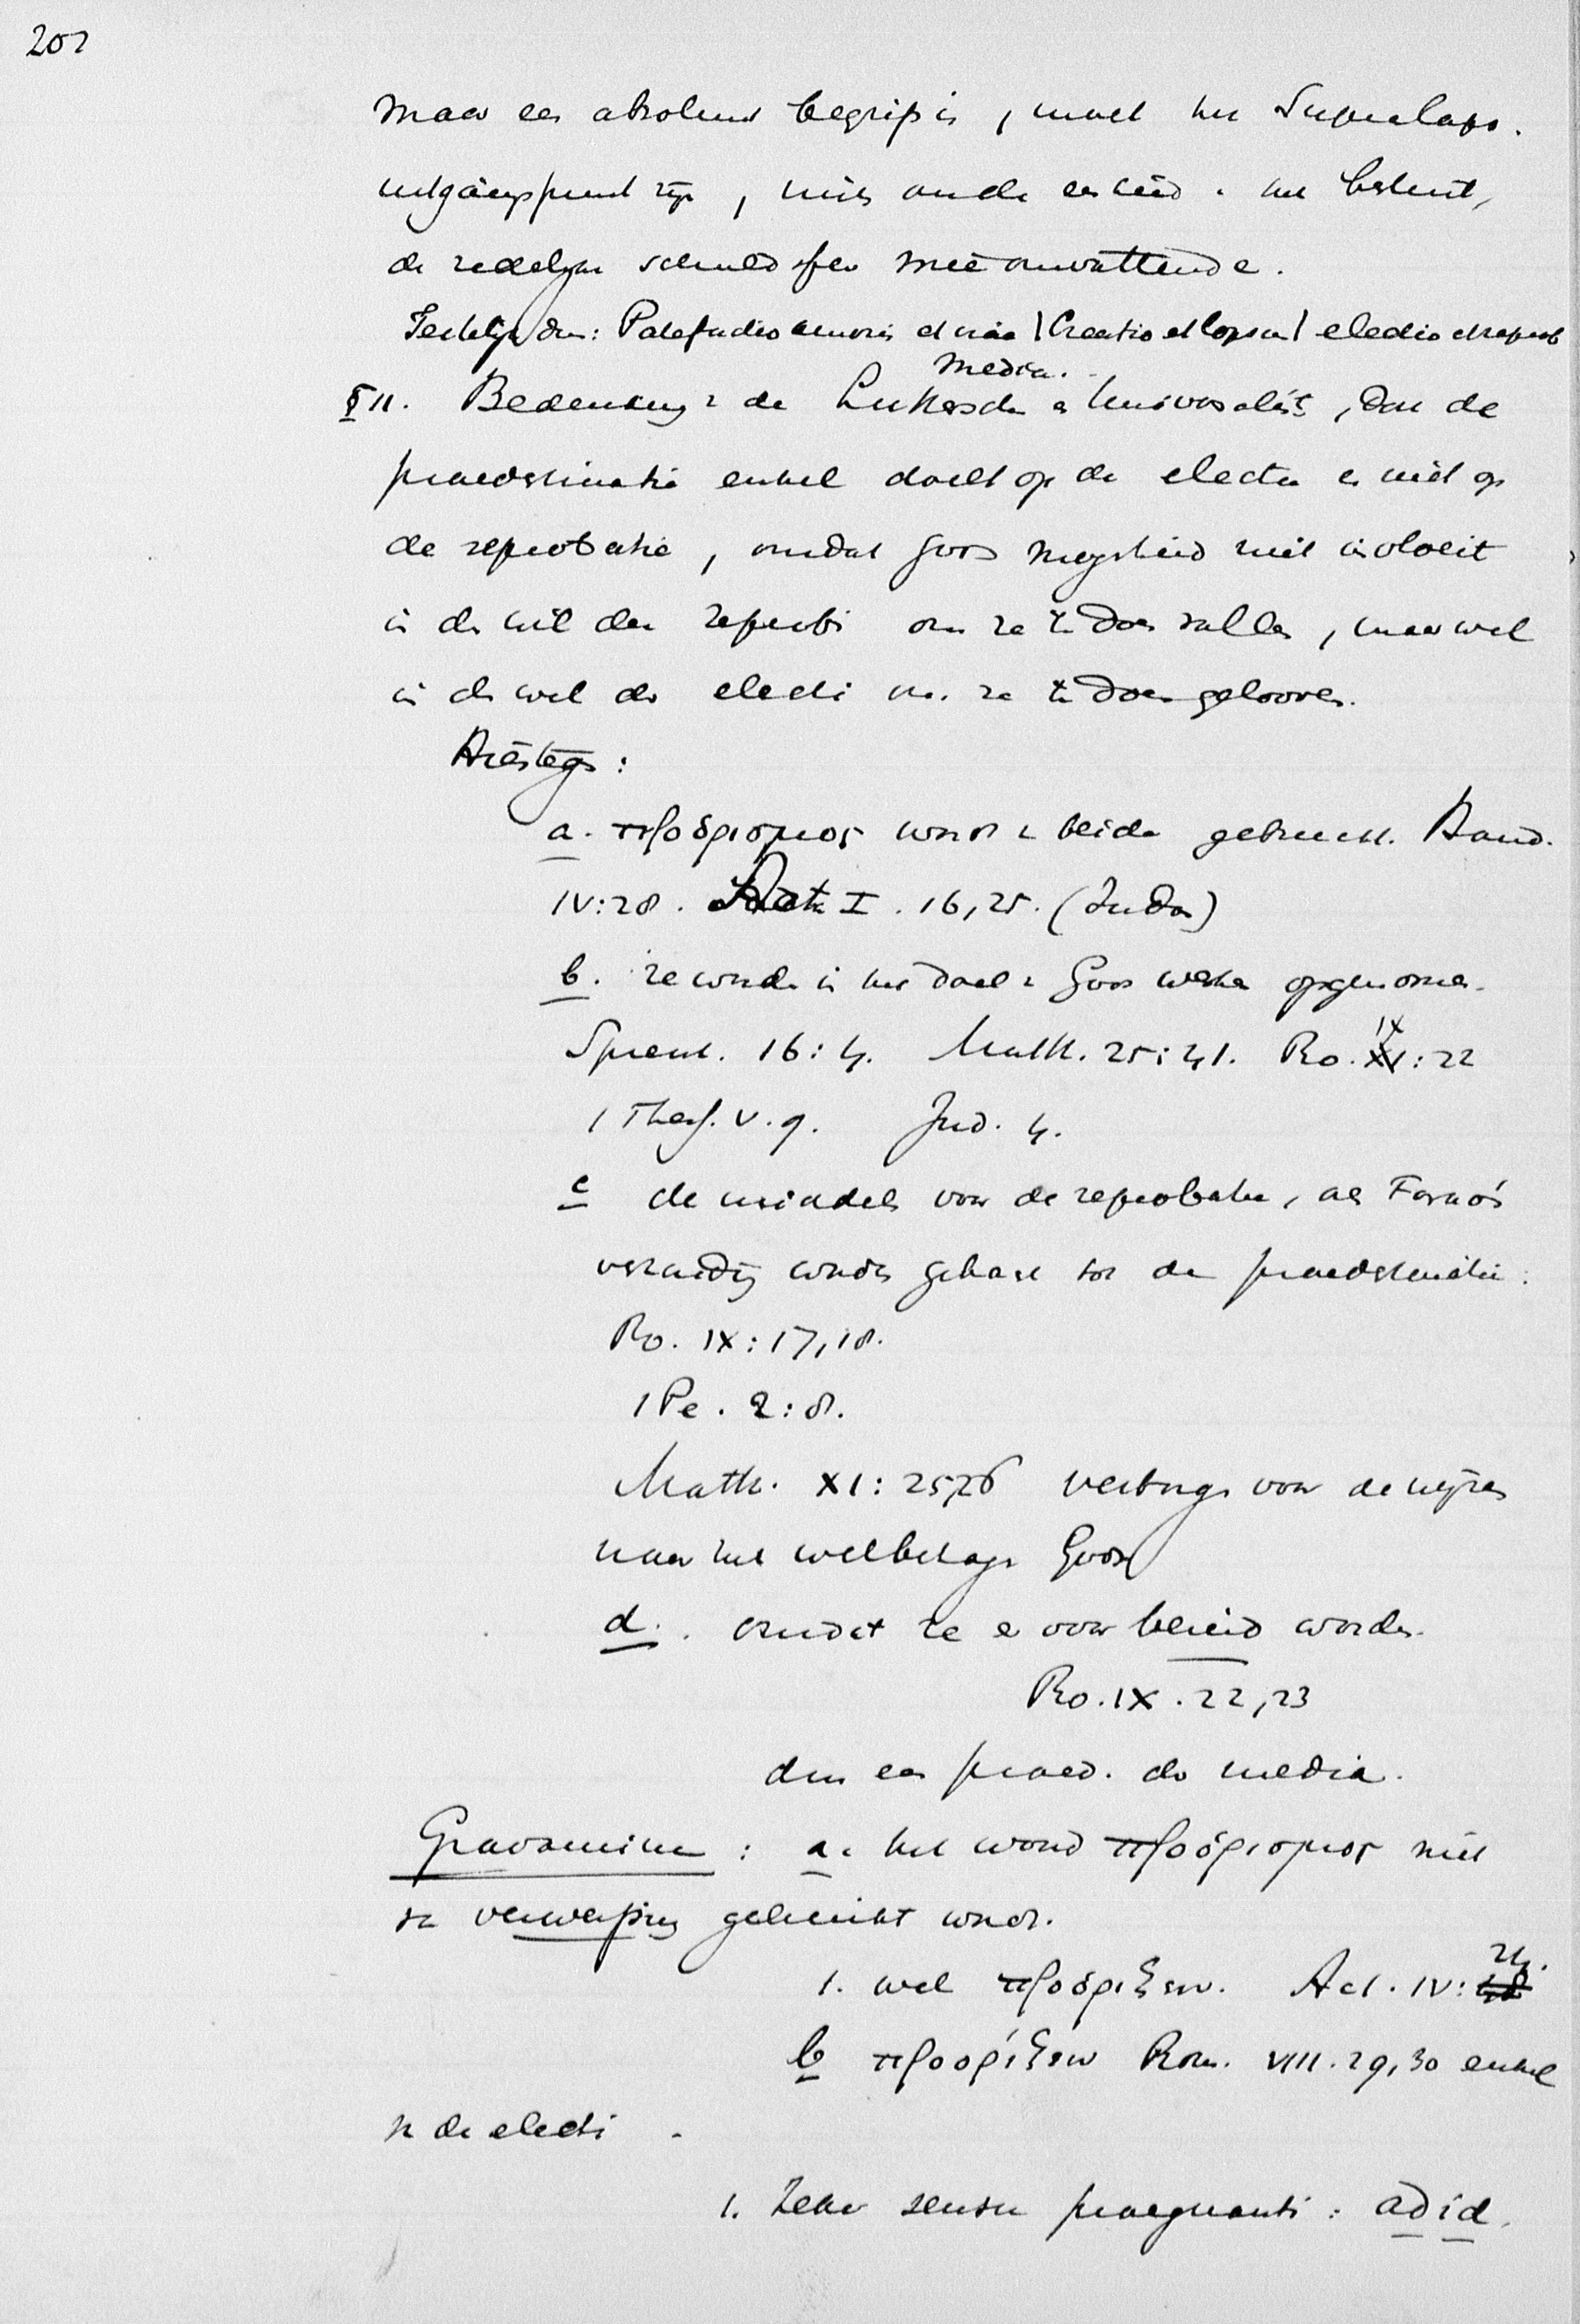 202
maar een absoluut begrip is, moet het Supralaps.
uitgangspunt zijn, mits onder eenheid v. het besluit,
de redelijke schuldsfeer meê omvattende.
Feitelijk dus: Patefactio amoris et irae | Creatio et lapsus | electio et reprob
media.
§ 11. Bedenking v de Luthersche en Universalist, dat de
praedestinatie enkel doelt op de electie en niet op
de reprobatie, omdat Gods mogendheid niet invloeit
in de wil der reprobi om ze te doen vallen, maar wel
in de wil der electi om ze te doen gelooven.
Hiertegen:
a. προόρισμος wordt v beide gebruikt. Hand.
IV:28. I. 16, 25. (Judas)
b. ze worden in het doel v Gods werken opgenomen.
Spreuk. 16:4. Matth. 25:41. Ro. IX:22
1 Thess. V.9. Jud. 4.
c de middelen voor de reprobatie, als Farao's
verharding worden gebracht tot de praedestinatie:
Ro. IX:17,18.
1 Pe. 2:8.
Matth. XI:25,26 verborgen voor de wijzen
naar het welbehagen Gods
d. omdat ze er voor bereid worden.
Ro. IX. 22,23
dus een praed. der media.
Gravamina: a. het woord προόρισμος niet
v verwerping gebruikt wordt.
1. wel προόριζειν. Act. IV:28
b προορίζειν Rom. VIII. 29,30 enkel
v de electi.
1. Zeker sensu praegnanti: ad id.